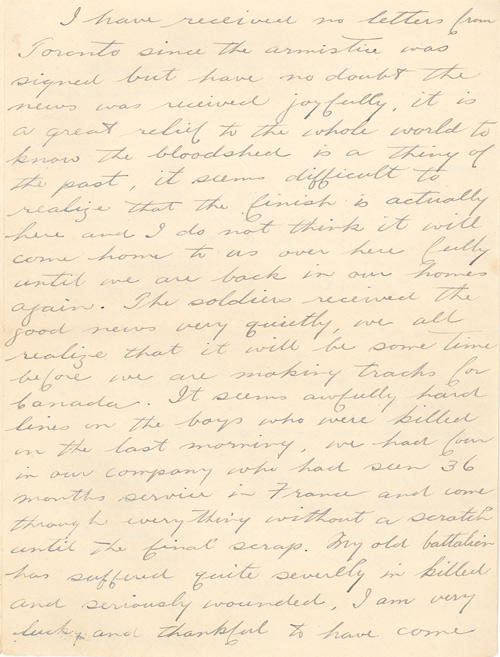 I have received no letters from
Toronto since the armistice was
signed but have no doubt the
news was received joyfully, it is
a great relief to the whole world to
know the bloodshed is a thing of
the past, it seems difficult to
realize that the finish is actually
here and I do not think it will
come home to us over here fully
until we are back in our homes
again. The soldiers received the
good news very quietly, we all
realize that it will be some time
before we are making tracks for
Canada. It seems awfully hard
lines on the boys who were killed
on the last morning, we had four
in our company who had seen 36
months service in France and come
through everything without a scratch
until the final scrap. My old battalion
has suffered quite severlly in killed
and seriously wounded, I am very
lucky and thankful to have come